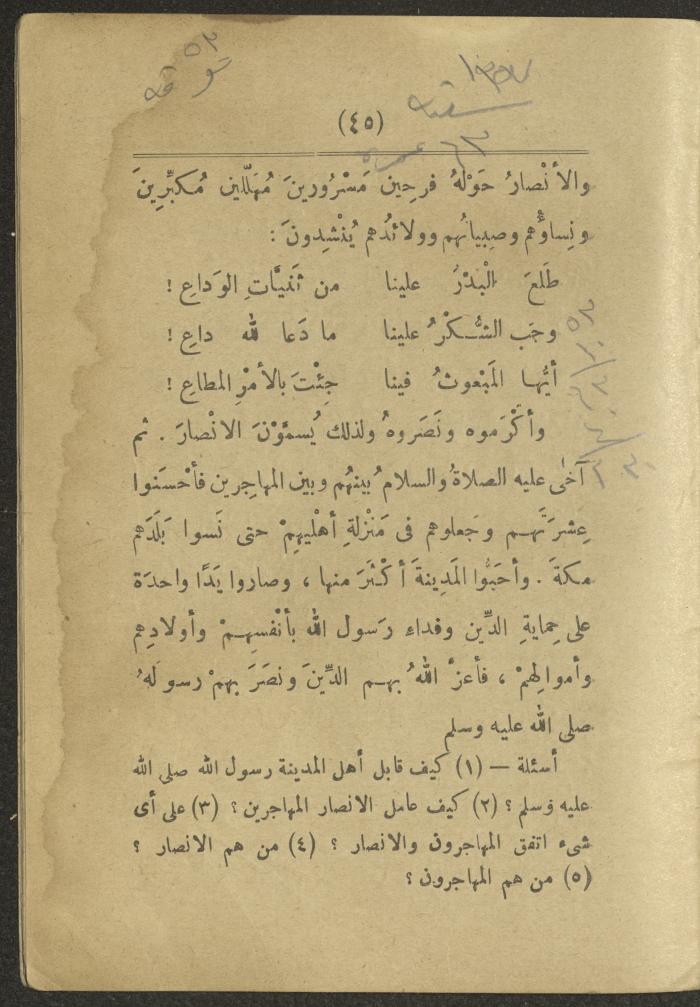 (٤٥)
والأنْصارُ حَوْلَهُ فرِحِين مَسْرُورِينَ مُهَلّلِين مُكبِّرِينَ
ونِساؤُهم وصِبيانُهم وولائدُهم يُنْشِدونَ :
طَلَعَ الْبَدْرُ علينا من ثَنيَّاتِ الوَداعِ !
وجَب الشُّكْرُ علينا ما دَعا لله داعِ !
أيُّها المَبْعوثُ فينا جِئْتَ بالأمْرِ المطاعِ !
وأكْرَموه ونَصَروهُ ولذلك يُسمَّوْنَ الانْصارَ . ثم
آخَى عليه الصلاةُ والسلامُ بينهُم وبين المهاجِرين فأحْسَنوا
عِشرَتَهم وجَعلوهم فى مَنْزلةِ أهْليهِمْ حتى نَسوا بَلَدَهم
مكةَ . وأحَبُّوا المَدِينةَ أكْثَرَ منها ، وصاروا يَدًا واحدَة
على حِمايةِ الدِّين وفداء رَسول الله بأنْفسِهِمْ وأولادِهم
وأموالِهمْ ، فأعزَّ اللهُ بهم الدِّينَ ونصَرَ بهمْ رسولَهُ
صلى الله عليه وسلم
أسئلة — (١) كيف قابل أهل المدينة رسول الله صلى الله
عليه وسلم ؟ (٢) كيف عامل الانصار المهاجرين ؟ (٣) على أى
شىء اتفق المهاجرون والانصار ؟ (٤) من هم الانصار ؟
(٥) من هم المهاجرون ؟